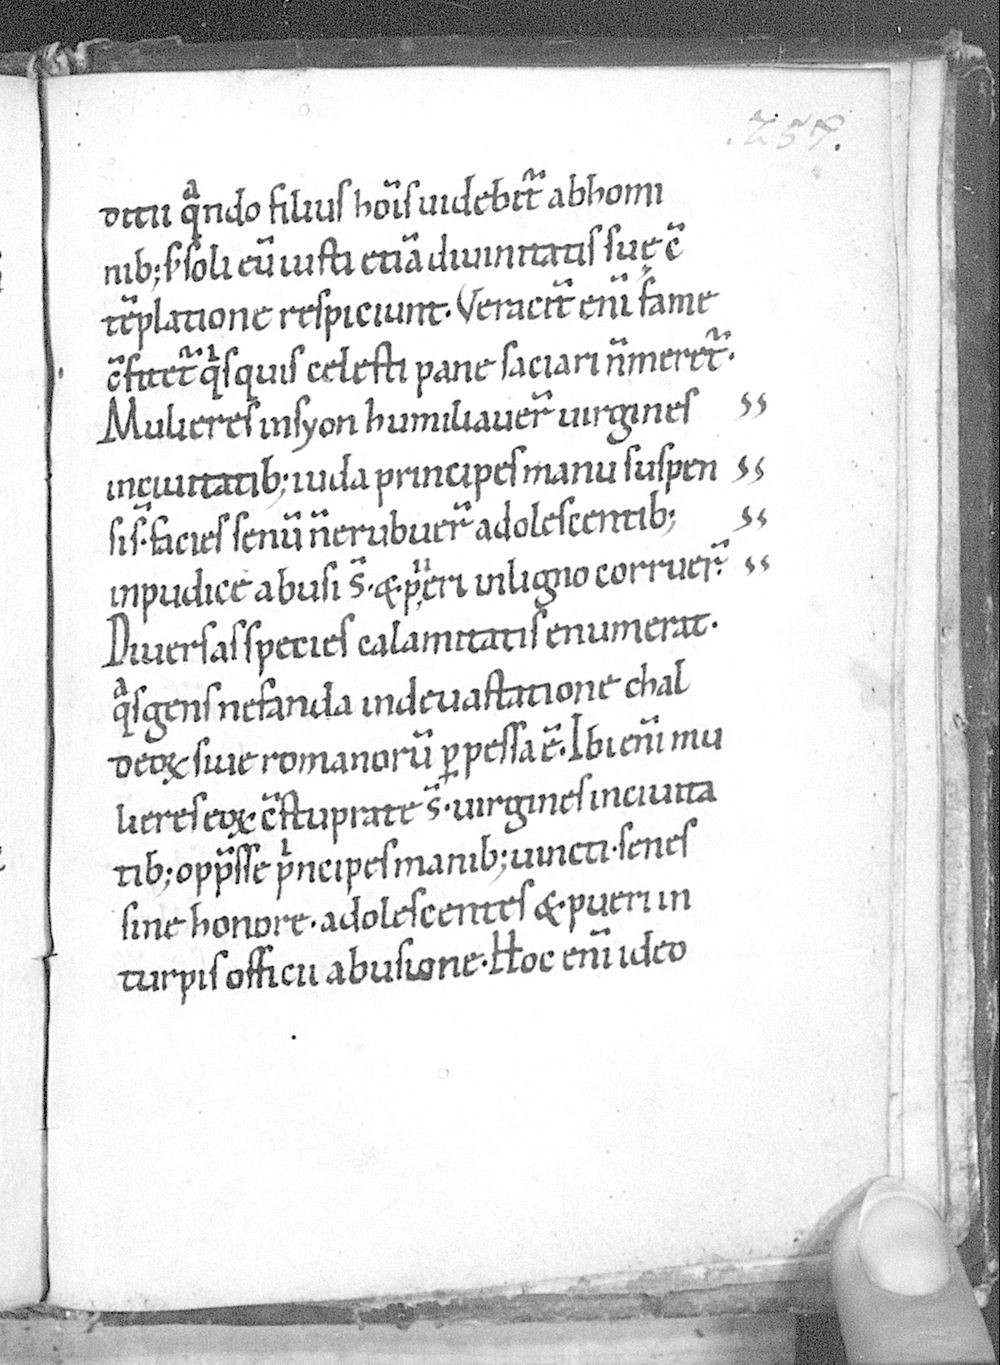 .257.
dicii qͣndo filius hoı̃s uidebit̃ ab homi
nib; s; soli eũ iusti etiã diuinitatis suę c̃
tẽplatione respiciunt. Veracit̃ enı̃ fame
c̃ficet̃ qͥsquis celesti pane saciari ñ meret̃.
Mulieres in syon humiliauer̃ uirgines ss
in ciuitatib; iuda principes manu suspen ss
si s̃. facies senũ ñ erubuer̃ adolescentib; ss
inpudice abusi s̃. & pueri in ligno corruer̃. ss
Diuersas species calamitatis enumerat.
qͣs gens nefanda in deuastatione chal
deoꝝ siue romanorũ ꝑpessa ẽ. Ibi enı̃ mu
lieres eoꝝ c̃stuprate s̃. uirgines in ciuita
tib; opp̃sse pͥncipes manib; uincti. senes
sine honore. adolescentes & pueri in
turpis officii abusione. Hoc enı̃ ideo